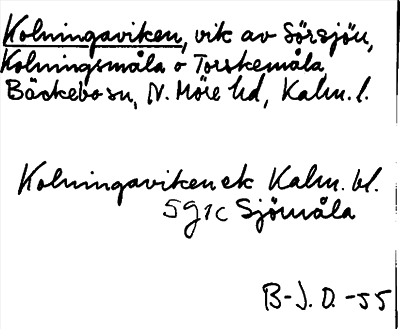 Kolningaviken, vik av Sörsjön,
Kolningsmåla o Torskemåla,
Bäckebo sn, N. Möre hd, Kalm. l.
Kolningaviken ek Kalm. bl.
5g1c Sjömåla
B-J. D. -55